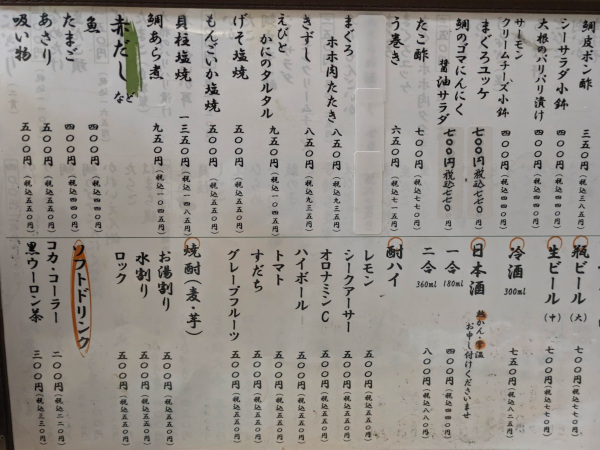 鯛皮ポン酢 三五〇円(税込三八五円)
シーサラダ小鉢 四〇〇円(税込四四〇円)
大根のパリパリ漬け 四〇〇円(税込四四〇円)
サーモン
クリームチーズ小鉢 四〇〇円(税込四四〇円)
まぐろユッケ 七〇〇円(税込七七〇円)
鯛のゴマにんにく
醤油サラダ 七〇〇円(税込七七〇円)
たこ酢 七〇〇円(税込七七〇円)
う巻き 六五〇円(税込七一五円)
まぐろ
ホホ肉たたき 八五〇円(税込九三五円)
きずし 八五〇円(税込九三五円)
えびと
かにのタルタル 九五〇円(税込一〇四五円)
げそ塩焼 五〇〇円(税込五五〇円)
もんざいか塩焼 五〇〇円(税込五五〇円)
貝柱塩焼 一三五〇円(税込一四八五円)
鯛あら煮 九五〇円(税込一〇四五円)
赤だしなど
魚 四〇〇円(税込四四〇円)
たまご 四〇〇円(税込四四〇円)
あさり 五〇〇円(税込五五〇円)
吸い物 五〇〇円(税込五五〇円)
瓶ビール(大) 七〇〇円(税込七七〇円)
生ビール(中) 七〇〇円(税込七七〇円)
冷酒 300ml 七五〇円(税込八二五円)
日本酒 熱かん・常温
お申し付けくださいませ
一合 180ml 四〇〇円(税込四四〇円)
二合 360ml 八〇〇円(税込八八〇円)
酎ハイ
レモン 五〇〇円(税込五五〇円)
シークアーサー 五〇〇円(税込五五〇円)
オロナミンC 五〇〇円(税込五五〇円)
ハイボール 五〇〇円(税込五五〇円)
トマト 五〇〇円(税込五五〇円)
すだち 五〇〇円(税込五五〇円)
グレープフルーツ 五〇〇円(税込五五〇円)
焼酎(麦・芋)
お湯割り 五〇〇円(税込五五〇円)
水割り 五〇〇円(税込五五〇円)
ロック 五〇〇円(税込五五〇円)
ソフトドリンク
コカ・コーラー 二〇〇円(税込二二〇円)
黒ウーロン茶 三〇〇円(税込三三〇円)